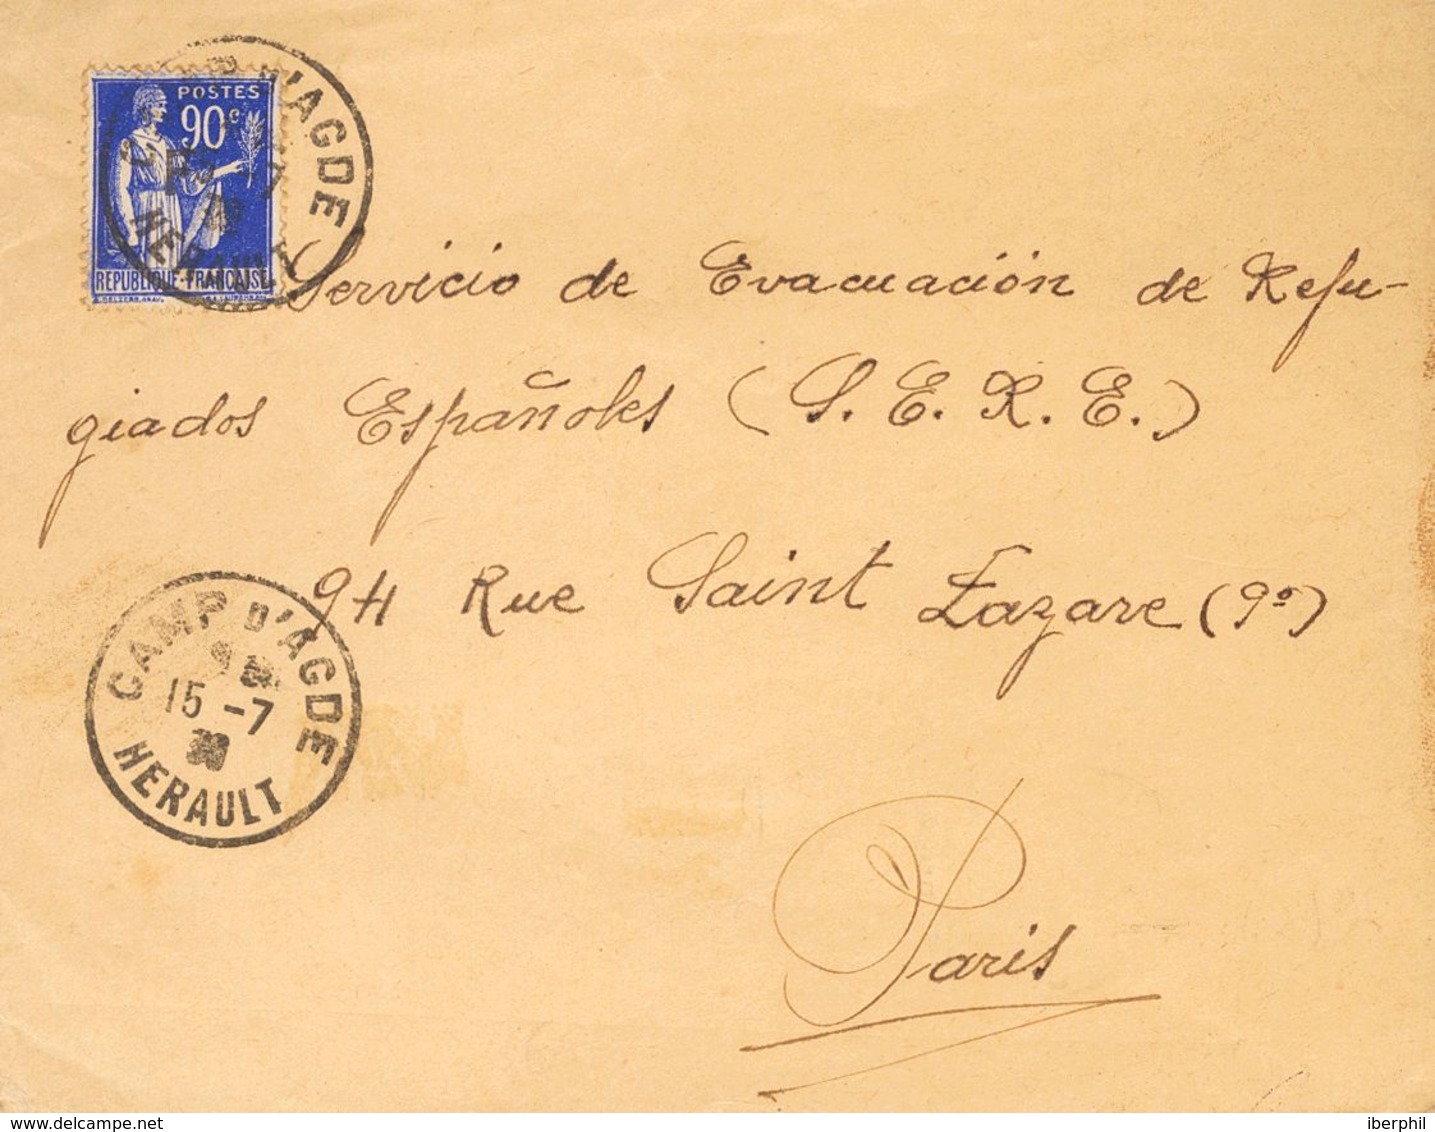 POSTES
90c
REPUBLIQUE-FRANÇAISE
D'AGDE
HERAULT
Servicio de Evacuación de Refu-
giados Españoles (S.E.R.E.)
94 Rue Saint Lazare (9º)
Paris
CAMP D'AGDE
15 -7
HERAULT
delcampe.net
iberphil